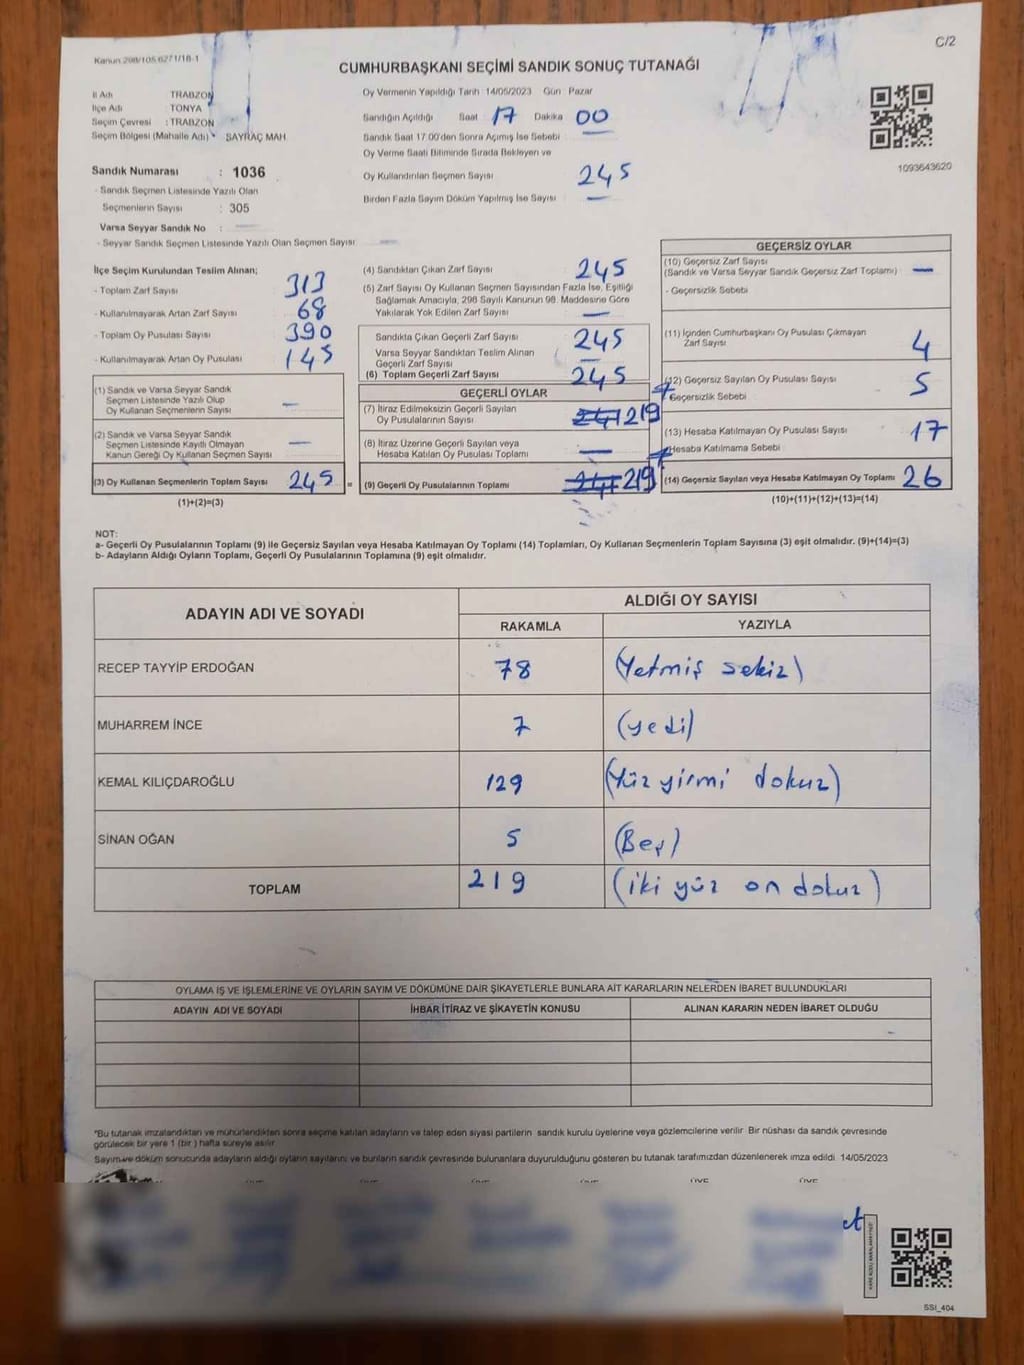 Kanun 298/105.6271/18-1
C/2
CUMHURBAŞKANI SEÇİMİ SANDIK SONUÇ TUTANAĞI
İl Adı TRABZON
İlçe Adı TONYA
Seçim Çevresi : TRABZON
Seçim Bölgesi (Mahalle Adı) SAYRAÇ MAH.
Sandık Numarası : 1036
- Sandık Seçmen Listesinde Yazılı Olan
Seçmenlerin Sayısı : 305
Varsa Seyyar Sandık No : —
- Seyyar Sandık Seçmen Listesinde Yazılı Olan Seçmen Sayısı —
Oy Vermenin Yapıldığı Tarih 14/05/2023 Gün Pazar
Sandığın Açıldığı Saat 17 Dakika 00
Sandık Saat 17:00'den Sonra Açılmış İse Sebebi —
Oy Verme Saati Bitiminde Sırada Bekleyen ve
Oy Kullandırılan Seçmen Sayısı 245
Birden Fazla Sayım Döküm Yapılmış İse Sayısı —
1093643620
İlçe Seçim Kurulundan Teslim Alınan;
- Toplam Zarf Sayısı 313
- Kullanılmayarak Artan Zarf Sayısı 68
- Toplam Oy Pusulası Sayısı 390
- Kullanılmayarak Artan Oy Pusulası 145
(1) Sandık ve Varsa Seyyar Sandık
Seçmen Listesinde Yazılı Olup
Oy Kullanan Seçmenlerin Sayısı —
(2) Sandık ve Varsa Seyyar Sandık
Seçmen Listesinde Kayıtlı Olmayan
Kanun Gereği Oy Kullanan Seçmen Sayısı —
(3) Oy Kullanan Seçmenlerin Toplam Sayısı 245 =
(1)+(2)=(3)
(4) Sandıktan Çıkan Zarf Sayısı 245
(5) Zarf Sayısı Oy Kullanan Seçmen Sayısından Fazla İse, Eşitliği
Sağlamak Amacıyla, 298 Sayılı Kanunun 98. Maddesine Göre
Yakılarak Yok Edilen Zarf Sayısı —
Sandıkta Çıkan Geçerli Zarf Sayısı 245
Varsa Seyyar Sandıktan Teslim Alınan
Geçerli Zarf Sayısı —
(6) Toplam Geçerli Zarf Sayısı 245
GEÇERLİ OYLAR
(7) İtiraz Edilmeksizin Geçerli Sayılan
Oy Pusulalarının Sayısı 241 219
(8) İtiraz Üzerine Geçerli Sayılan veya
Hesaba Katılan Oy Pusulası Toplamı —
(9) Geçerli Oy Pusulalarının Toplamı 241 219
GEÇERSİZ OYLAR
(10) Geçersiz Zarf Sayısı
(Sandık ve Varsa Seyyar Sandık Geçersiz Zarf Toplamı) —
- Geçersizlik Sebebi
(11) İçinden Cumhurbaşkanı Oy Pusulası Çıkmayan
Zarf Sayısı 4
(12) Geçersiz Sayılan Oy Pusulası Sayısı 5
Geçersizlik Sebebi
(13) Hesaba Katılmayan Oy Pusulası Sayısı 17
Hesaba Katılmama Sebebi
(14) Geçersiz Sayılan veya Hesaba Katılmayan Oy Toplamı 26
(10)+(11)+(12)+(13)=(14)
NOT:
a- Geçerli Oy Pusulalarının Toplamı (9) ile Geçersiz Sayılan veya Hesaba Katılmayan Oy Toplamı (14) Toplamları, Oy Kullanan Seçmenlerin Toplam Sayısına (3) eşit olmalıdır. (9)+(14)=(3)
b- Adayların Aldığı Oyların Toplamı, Geçerli Oy Pusulalarının Toplamına (9) eşit olmalıdır.
ADAYIN ADI VE SOYADI ALDIĞI OY SAYISI
RAKAMLA YAZIYLA
RECEP TAYYİP ERDOĞAN 78 (Yetmiş sekiz)
MUHARREM İNCE 7 (yedi)
KEMAL KILIÇDAROĞLU 129 (Yüz yirmi dokuz)
SİNAN OĞAN 5 (Beş)
TOPLAM 219 (iki yüz on dokuz)
OYLAMA İŞ VE İŞLEMLERİNE VE OYLARIN SAYIM VE DÖKÜMÜNE DAİR ŞİKAYETLERLE BUNLARA AİT KARARLARIN NELERDEN İBARET BULUNDUKLARI
ADAYIN ADI VE SOYADI İHBAR İTİRAZ VE ŞİKAYETİN KONUSU ALINAN KARARIN NEDEN İBARET OLDUĞU
*Bu tutanak imzalandıktan ve mühürlendikten sonra seçime katılan adayların ve talep eden siyasi partilerin sandık kurulu üyelerine veya gözlemcilerine verilir. Bir nüshası da sandık çevresinde
görülecek bir yere 1 (bir) hafta süreyle asılır.
Sayım ve döküm sonucunda adayların aldığı oyların sayılarını ve bunların sandık çevresinde bulunanlara duyurulduğunu gösteren bu tutanak tarafımızdan düzenlenerek imza edildi. 14/05/2023
ÜYE ÜYE ÜYE ÜYE ÜYE ÜYE
et
SSI_404